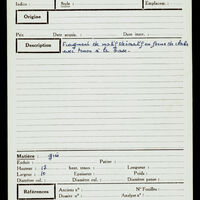 Indice : Style : Emplacem. :
Origine
Prix Date acquis. : Date inv. :
Description Fragment de motif décoratif en forme de
avec tenon à la base.
Matière : grès
Enduit : Patine :
Hauteur : 17 haut. tenon : Longueur :
Largeur : 10 Epaisseur : Poids :
Diamètre col. : Diamètre panse :
Références Anciens nos : Nos Fouilles :
Dates : Analyse nos :